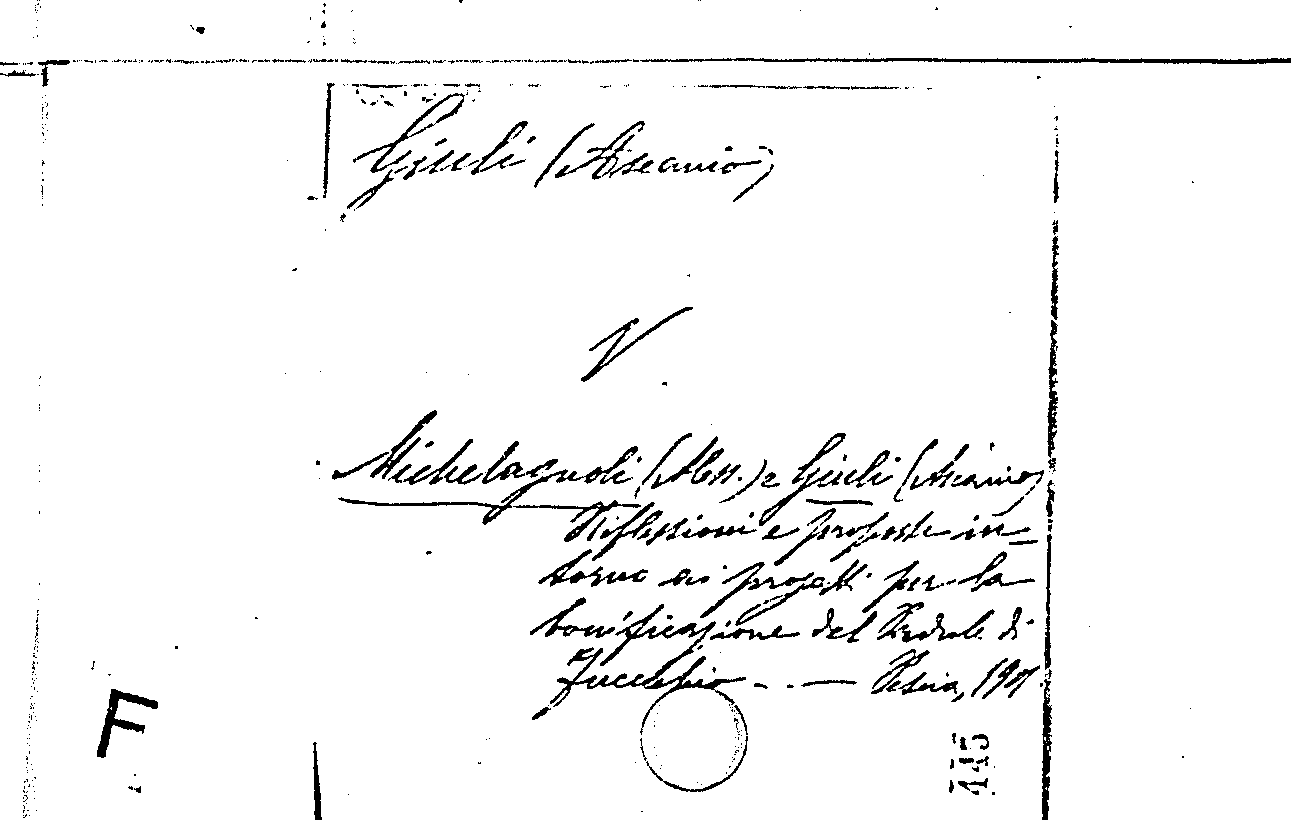 Giuli (Ascanio)
V
Michelagnoli (Aless.) e Giuli (Ascanio)
Riflessioni e proposte in=
torno ai progetti per la
bonificazione del Padule di
Fucecchio - . . — Pescia,
F
445